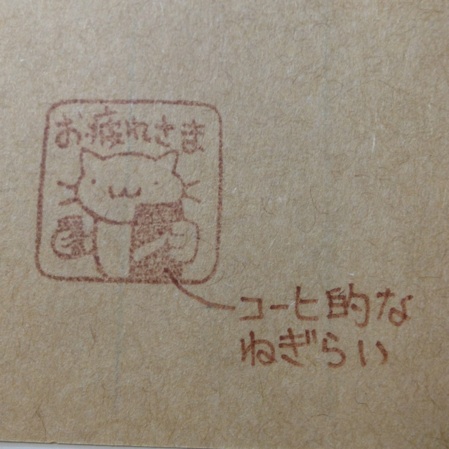 お疲れさま
コーヒ的な
ねぎらい